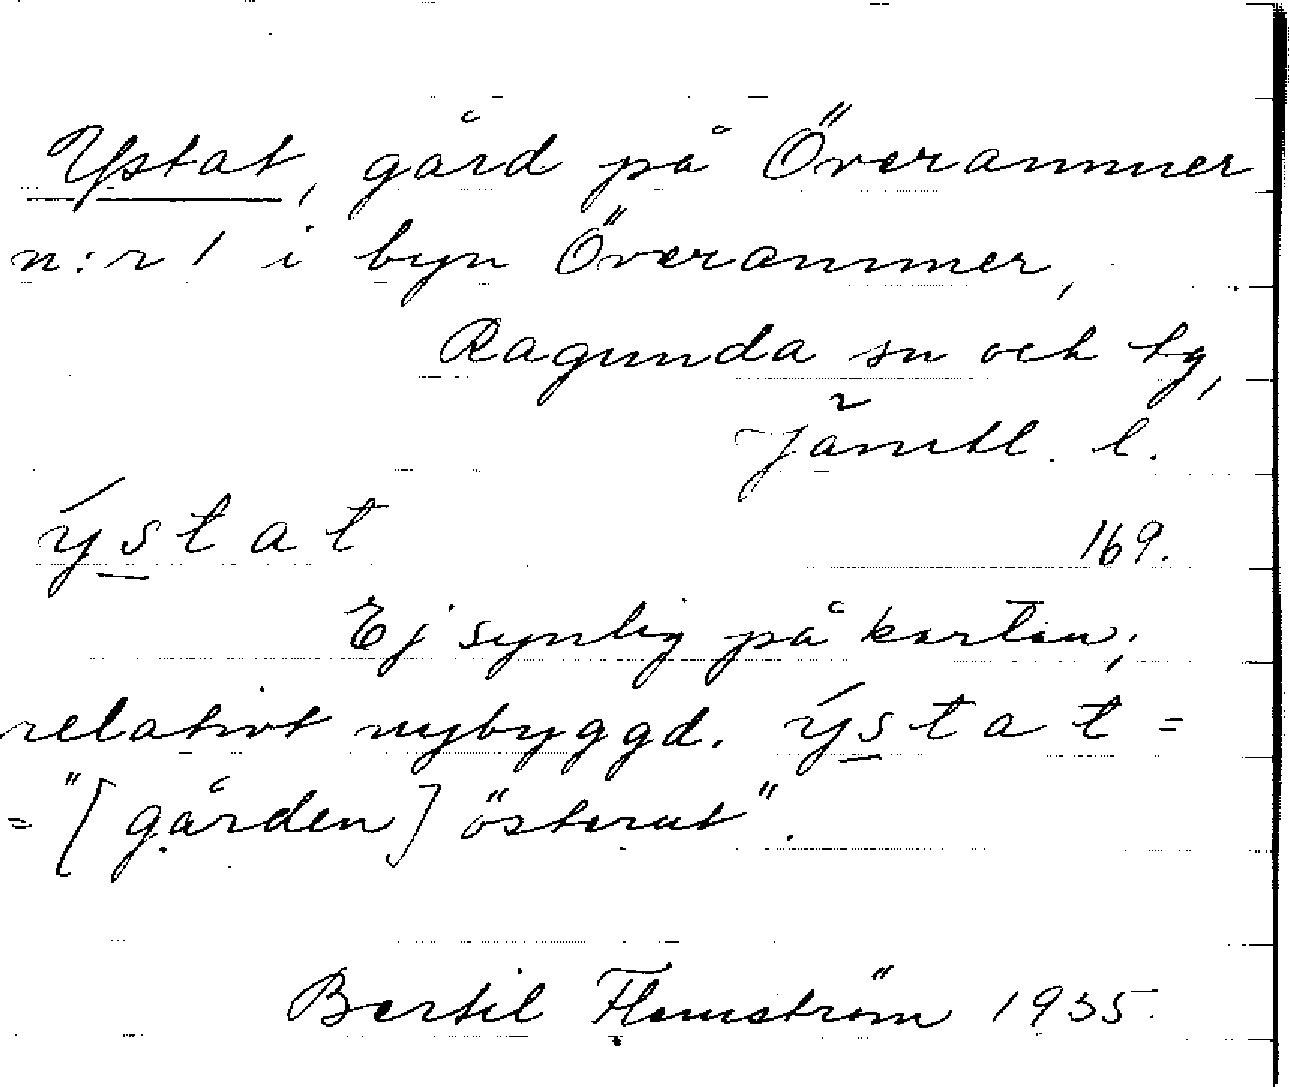 Ystat, gård på Överammer
n:r 1 i byn Överammer,
Ragunda sn och tg,
Jämtl. l.
ýstat
169.
Ej synlig på kartan;
relativt nybyggd. ýstat =
= "[gården] österut".
Bertil Flemström 1935.